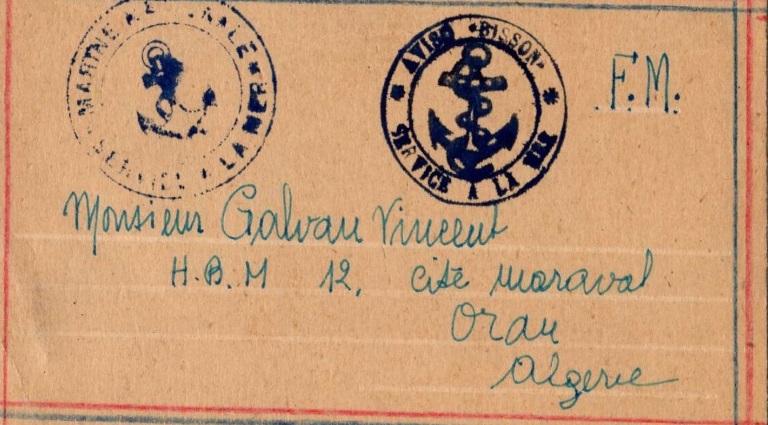 MARINE NATIONALE
SERVICE A LA MER
AVISO "BISSON"
* SERVICE A LA MER *
F.M.
Monsieur Galvan Vincent
H.B.M 12, cité Maraval
Oran
Algerie